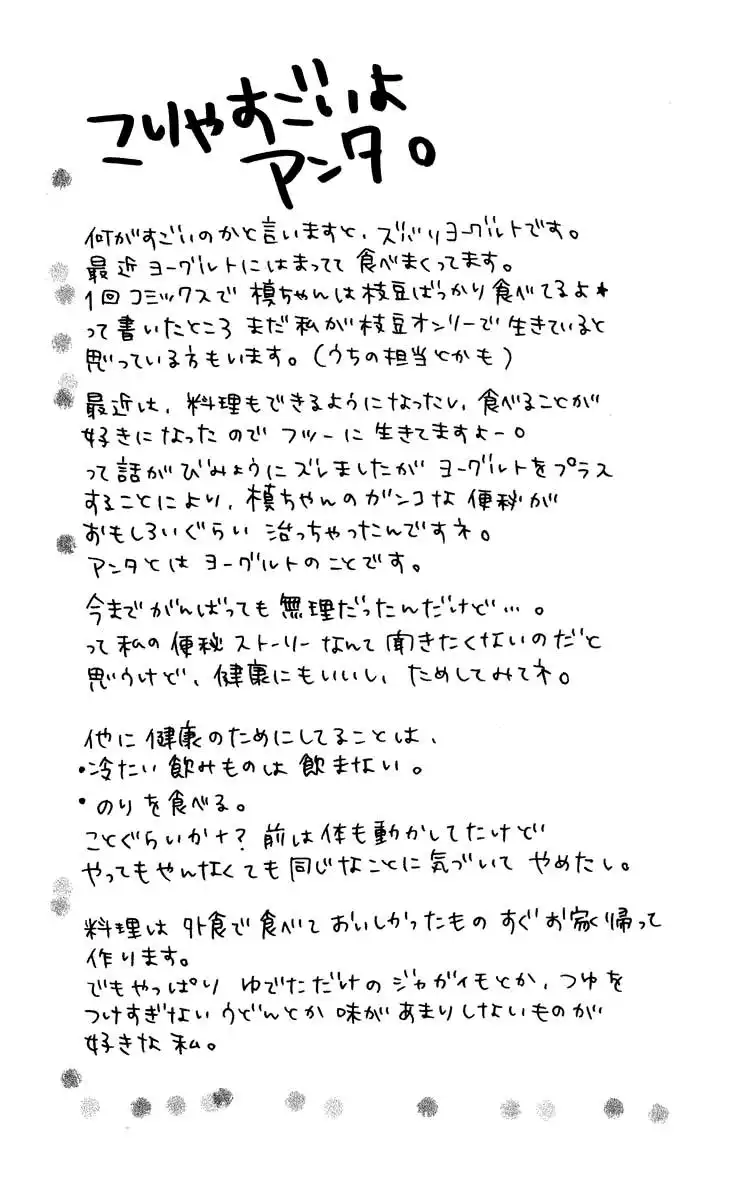 こりゃすごいよ
アンタ。
何がすごいのかと言いますと、ズバリヨーグルトです。
最近ヨーグルトにはまってて食べまくってます。
1回コミックスで槙ちゃんは枝豆ばっかり食べてるよ★
って書いたところまだ私が枝豆オンリーで生きていると
思っている方もいます。(うちの担当とかも)
最近は、料理もできるようになったし、食べることが
好きになったのでフツーに生きてますよー。
って話がびみょうにズレましたがヨーグルトをプラス
することにより、槙ちゃんのガンコな便秘が
おもしろいぐらい治っちゃったんですネ。
アンタとはヨーグルトのことです。
今までがんばっても無理だったんだけど…。
って私の便秘ストーリーなんて聞きたくないのだと
思うけど、健康にもいいし、ためしてみてネ。
他に健康のためにしてることは、
・冷たい飲みものは飲まない。
・のりを食べる。
ことぐらいかナ?前は体も動かしてたけど
やってもやんなくても同じなことに気づいてやめたし。
料理は外食で食べておいしかったものすぐお家帰って
作ります。
でもやっぱりゆでただけのジャガイモとか、つゆを
つけすぎないうどんとか味があまりしないものが
好きな私。